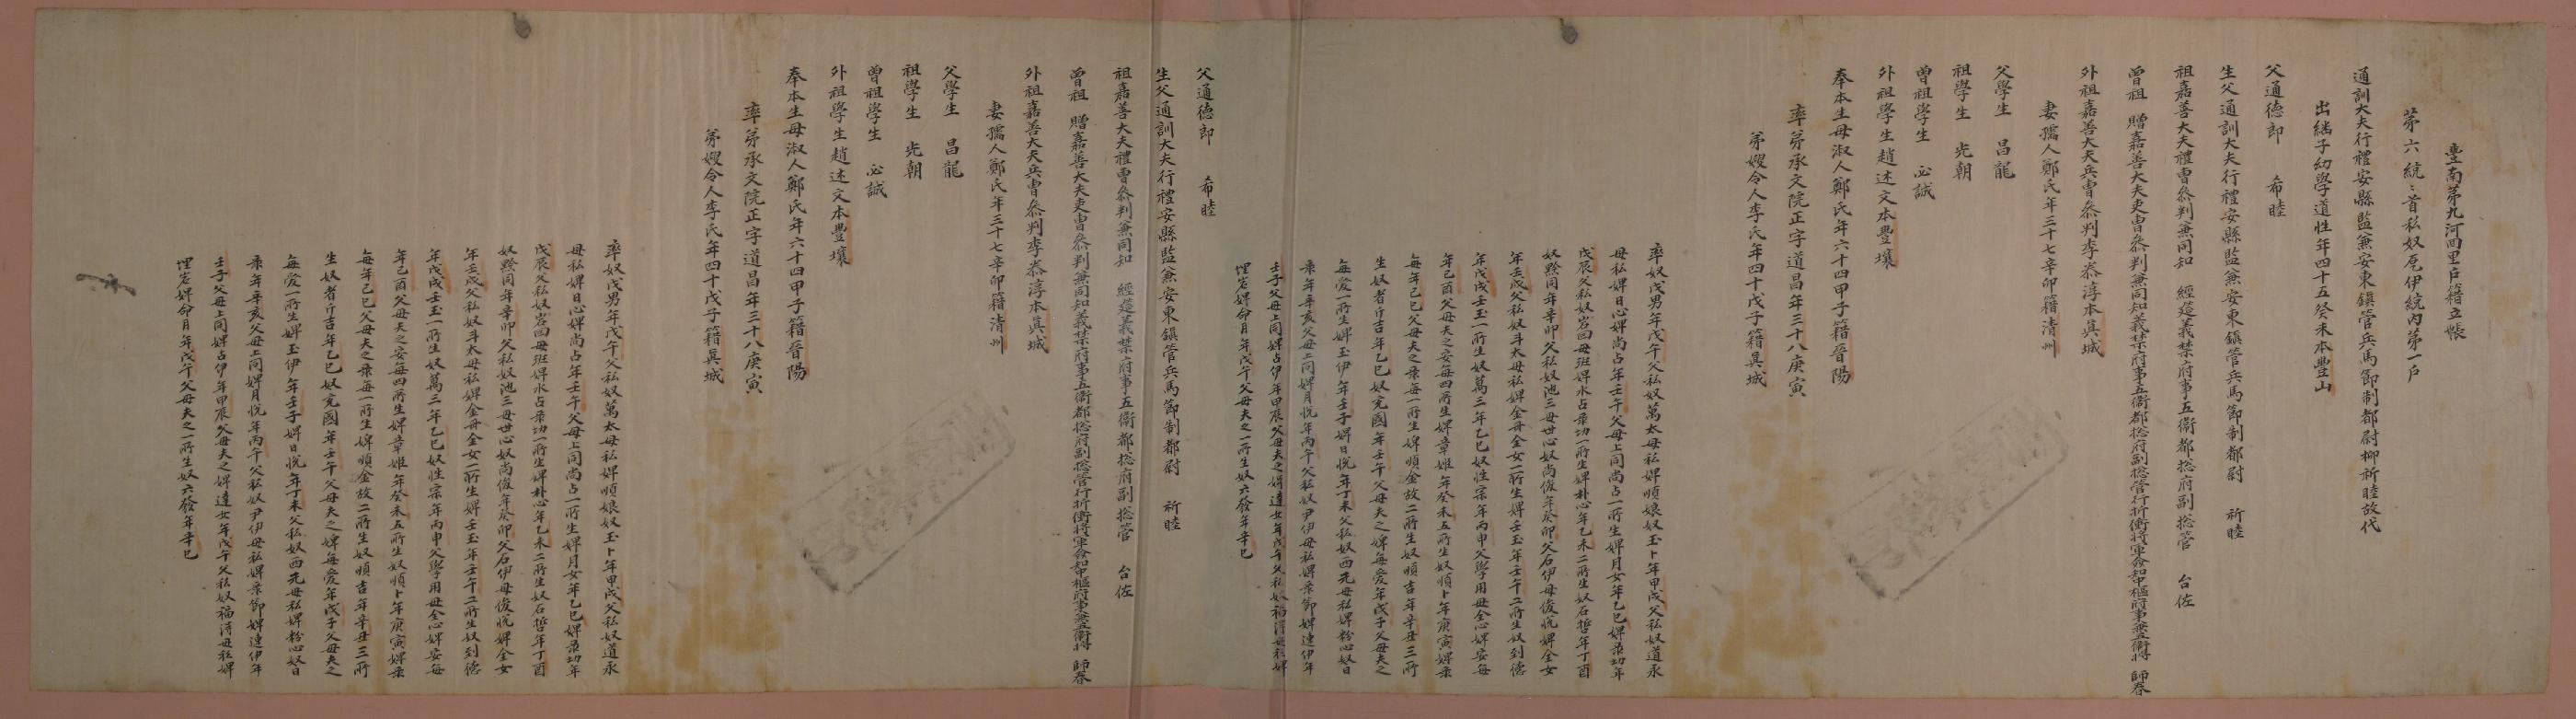 豊南苐九河回里戶籍立帳
苐六統〻首私奴厖伊統內苐一戶
通訓大夫行禮安縣監兼安東鎭管兵馬節制都尉柳祈睦故代
出繼子幼學道性年四十五癸未本豊山
父通德郎 希睦
生父通訓大夫行禮安縣監兼安東鎭管兵馬節制都尉 祈睦
祖嘉善大夫禮曹叅判兼同知 經筵義禁府事五衛都捴府副捴管 台佐
曾祖 贈嘉善大夫吏曹叅判兼同知義禁府事五衛都捴府副捴管行折衝將軍僉知中樞府事兼五衛將 師春
外祖嘉善大夫兵曹叅判李泰淳本眞城
妻孺人鄭氏年三十七辛卯籍淸州
父學生 昌龍
祖學生 光朝
曾祖學生 必誠
外祖學生趙述文本豊壤
奉本生母淑人鄭氏年六十四甲子籍晉陽
率苐承文院正字道昌年三十八庚寅
苐嫂令人李氏年四十戊子籍眞城
率奴戊男年戊午父私奴萬太母私婢順娘奴玉卜年甲戌父私奴道永
母私婢日心婢尙占年壬午父母上同尙占一所生婢月女年乙巳婢彔功年
戊辰父私奴岩回母班婢水占彔功一所生婢朴心年乙未二所生奴石哲年丁酉
奴黔同年辛卯父私奴池三母世心奴尙俊年癸卯父石伊母俊悅婢全女
年壬戌父私奴斗太母私婢金每全女一所生婢壬玉年壬午二所生奴到德
年戊戌壬玉一所生奴萬三年乙巳奴性宗年丙申父學用母全心婢安每
年己酉父母夫之安每四所生婢章姬年癸未五所生奴順卜年庚寅婢彔
每年己巳父母夫之彔每一所生婢順金故二所生奴順吉年辛丑三所
生奴者斤吉年乙巳奴完國年壬午父母夫之婢每愛年戊子父母夫之
每愛一所生婢玉伊年壬子婢日悅年丁未父私奴西先母私婢粉心奴日
彔年辛亥父母上同婢月悅年丙午父私奴尹伊母私婢彔節婢連伊年
壬子父母上同婢占伊年甲辰父母夫之婢達女年戊午父私奴福淂母私婢
埋岩婢命月年戊午父母夫之一所生奴六發年辛巳
父通德郎 希睦
生父通訓大夫行禮安縣監兼安東鎭管兵馬節制都尉 祈睦
祖嘉善大夫禮曹叅判兼同知 經筵義禁府事五衛都捴府副捴管 台佐
曾祖 贈嘉善大夫吏曹叅判兼同知義禁府事五衛都捴府副捴管行折衝將軍僉知中樞府事兼五衛將 師春
外祖嘉善大夫兵曹叅判李泰淳本眞城
妻孺人鄭氏年三十七辛卯籍淸州
父學生 昌龍
祖學生 光朝
曾祖學生 必誠
外祖學生趙述文本豊壤
奉本生母淑人鄭氏年六十四甲子籍晉陽
率苐承文院正字道昌年三十八庚寅
苐嫂令人李氏年四十戊子籍眞城
率奴戊男年戊午父私奴萬太母私婢順娘奴玉卜年甲戌父私奴道永
母私婢日心婢尙占年壬午父母上同尙占一所生婢月女年乙巳婢彔功年
戊辰父私奴岩回母班婢水占彔功一所生婢朴心年乙未二所生奴石哲年丁酉
奴黔同年辛卯父私奴池三母世心奴尙俊年癸卯父石伊母俊悅婢全女
年壬戌父私奴斗太母私婢金每全女一所生婢壬玉年壬午二所生奴到德
年戊戌壬玉一所生奴萬三年乙巳奴性宗年丙申父學用母全心婢安每
年己酉父母夫之安每四所生婢章姬年癸未五所生奴順卜年庚寅婢彔
每年己巳父母夫之彔每一所生婢順金故二所生奴順吉年辛丑三所
生奴者斤吉年乙巳奴完國年壬午父母夫之婢每愛年戊子父母夫之
每愛一所生婢玉伊年壬子婢日悅年丁未父私奴西先母私婢粉心奴日
彔年辛亥父母上同婢月悅年丙午父私奴尹伊母私婢彔節婢連伊年
壬子父母上同婢占伊年甲辰父母夫之婢達女年戊午父私奴福淂母私婢
埋岩婢命月年戊午父母夫之一所生奴六發年辛巳